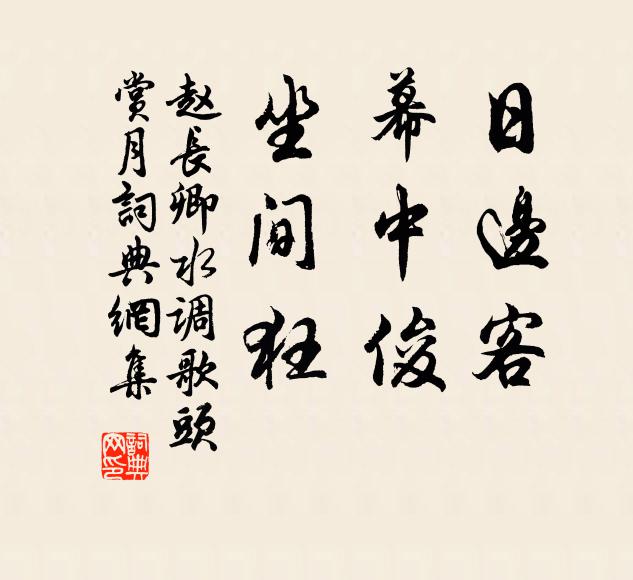 日邊客
幕中俊
坐间狂
赵長卿水调歌頭
賞月詞典網集
詞典网印